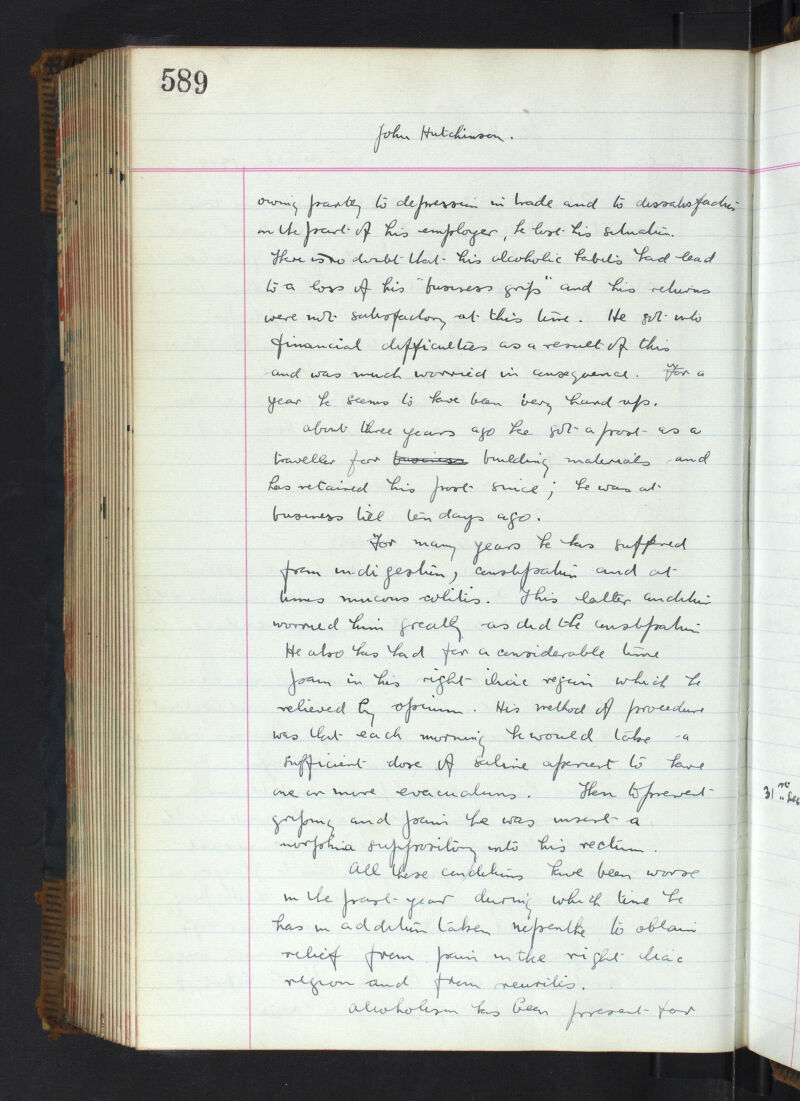 589
John Hutchinson.
owing partly to depression in trade and to dissatisfaction
on the part of his employer, he lost his situation.
There is no doubt that his alcoholic habits had lead
to a loss of his "business grip" and his returns
were not satisfactory at this time. He got into
financial difficulties as a result of this
and was much worried in consequence. For a
year he seems to have been very hard up.
about three years ago he got a post as a
traveller for business building materials and
has retained his post since; he was at
business till ten days ago.
For many years he has suffered
from indigestion, constipation and at
times mucous colitis. This latter condition
worried him greatly as did the constipation
He also has had for a considerable time
pain in his right iliac region which he
relieved by opium. His method of procedure
was that each morning he would take a
sufficient dose of saline aperient to have
one or more evacuations. Then to prevent
griping and pain he was insert a
morphia suppository into his rectum.
All these conditions have been worse
in the past year during which time he
has in addition taken nepenthe to obtain
relief from pain in the right iliac
region and from neuritis.
alcoholism has been present for
31st